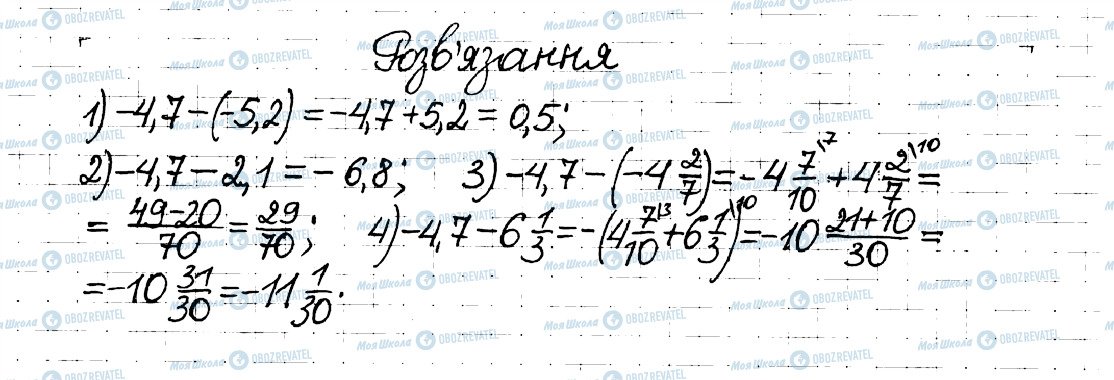 Розв'язання
1) -4,7-(-5,2)=-4,7+5,2=0,5;
2) -4,7-2,1=-6,8; 3) -4,7-(-4 2/7)=-4 7/10 \7 + 4 2/7 \10 =
= 49-20/70 = 29/70; 4) -4,7-6 1/3=-(4 7/10 \3 + 6 1/3 \10)=-10 21+10/30 =
=-10 31/30=-11 1/30.